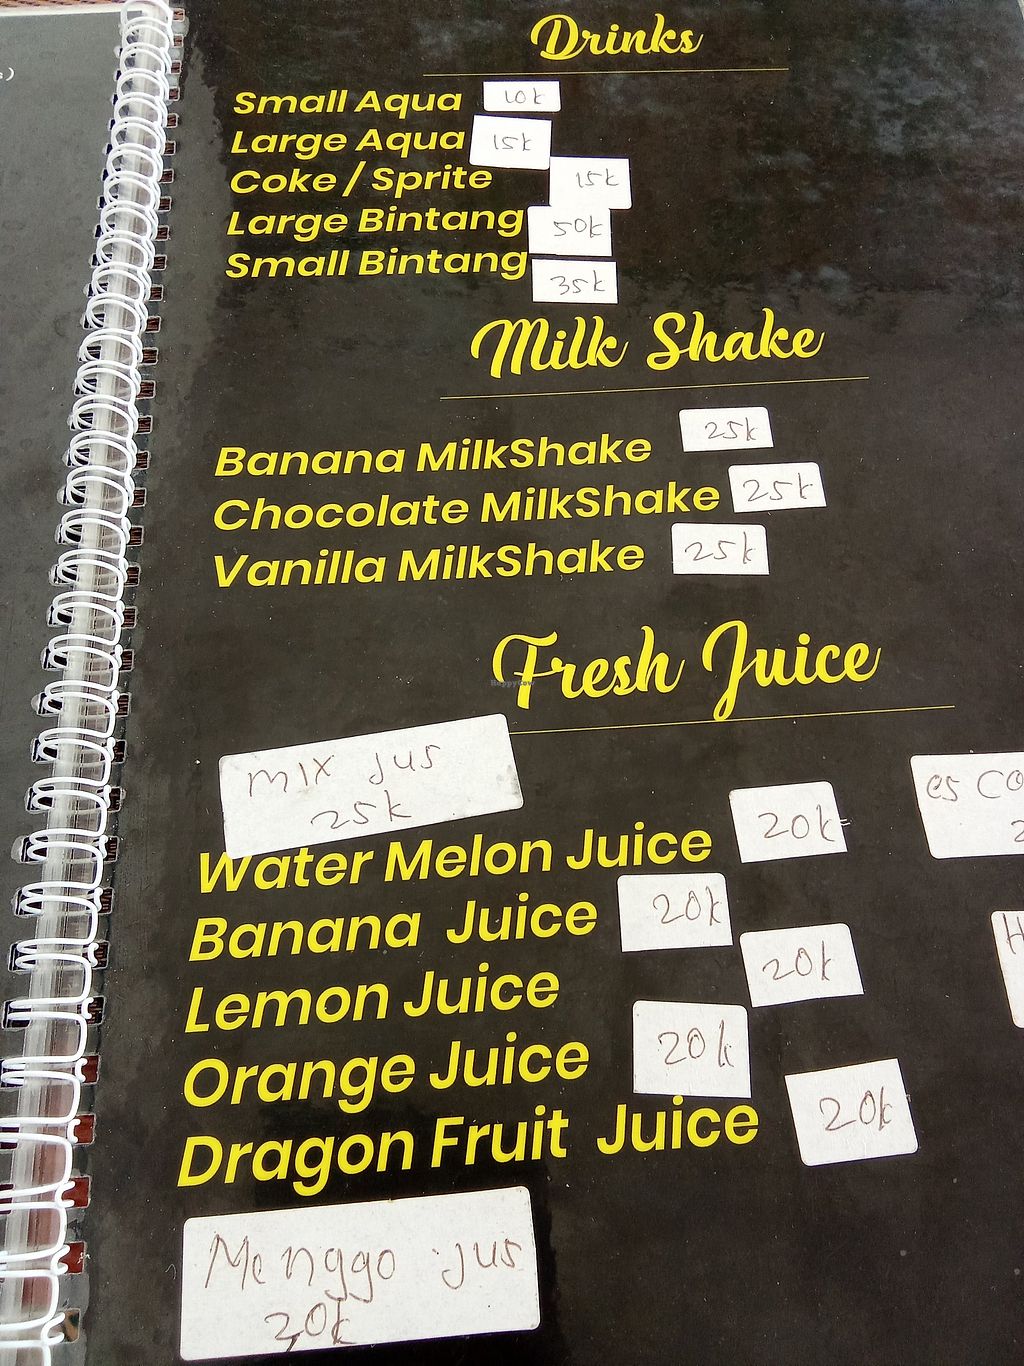 Drinks
Small Aqua 10k
Large Aqua 15k
Coke / Sprite 15k
Large Bintang 50k
Small Bintang 35k
Milk Shake
Banana MilkShake 25k
Chocolate MilkShake 25k
Vanilla MilkShake 25k
Fresh Juice
HappyCow
mix jus
25k
es co
2
Water Melon Juice 20k
Banana Juice 20k
H
Lemon Juice 20k
Orange Juice 20k
Dragon Fruit Juice 20k
Menggo jus
20k